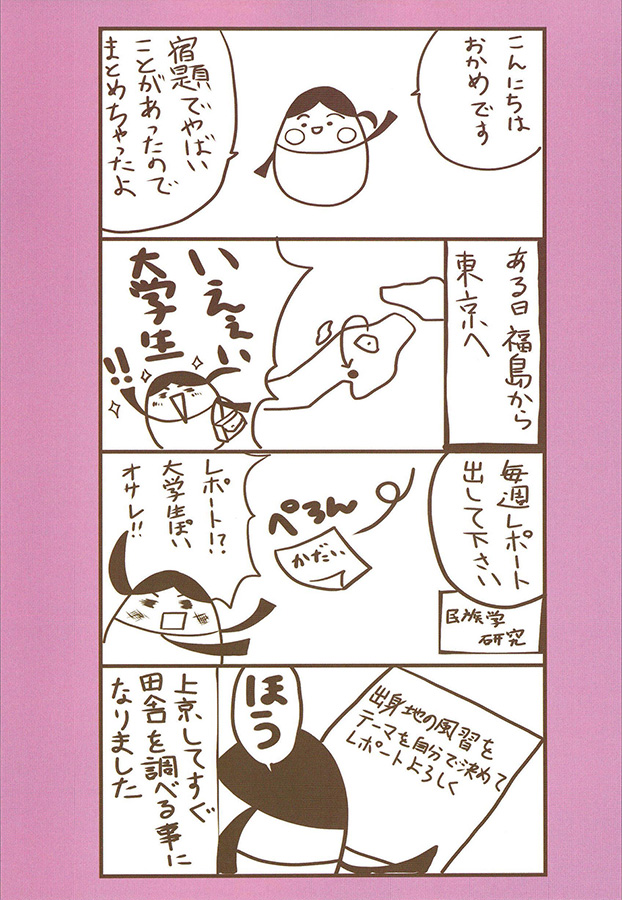 こんにちは
おかめです
宿題でやばい
ことがあったので
まとめちゃったよ
ある日 福島から
東京へ
いえぇい
大学生
!!
毎週レポート
出して下さい
民族学
研究
ぺろん
かだい
レポート!?
大学生ぽい
オサレ!!
出身地の風習を
テーマを自分で決めて
レポートよろしく
ほう
上京してすぐ
田舎を調べる事に
なりました